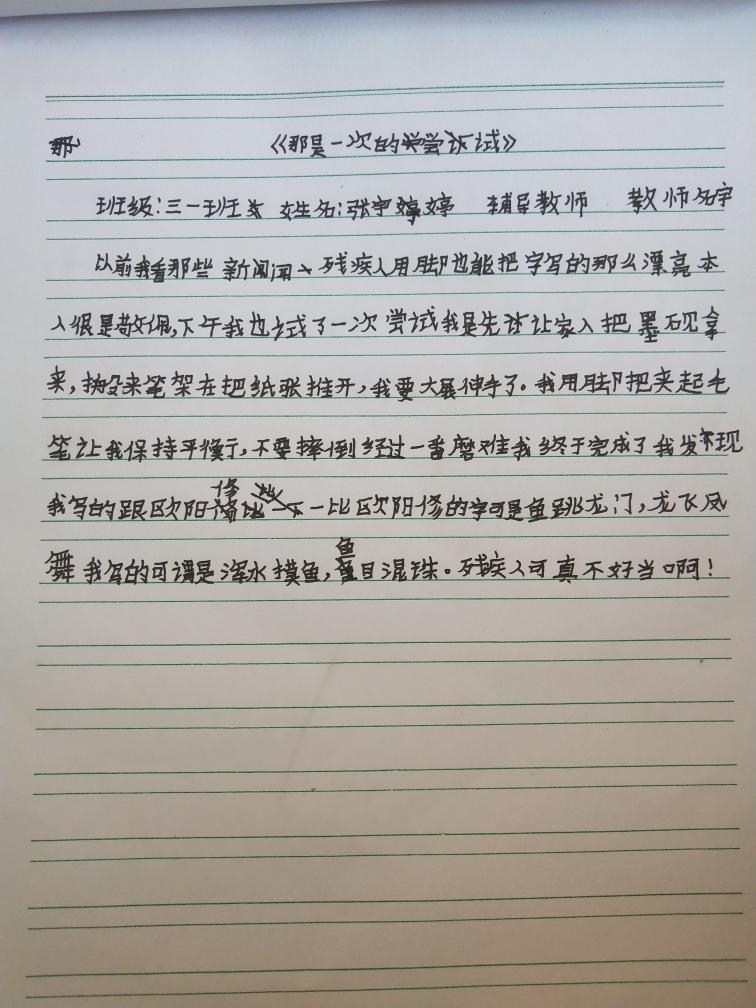 那
《那是一次的尝试》
班级:三一班 姓名:张宇婷 辅导教师 教师名字
以前我看那些新闻、残疾人用脚也能把字写的那么漂亮本
人很是敬佩,下午我也试了一次尝试我是先让家人把墨砚拿
来,搬来笔架在把纸张推开,我要大展伸手了。我用脚把夹起毛
笔让我保持平衡,不要摔倒经过一番磨难我终于完成了我发现
我写的跟欧阳修一比欧阳修的字可是鱼跳龙门,龙飞凤
舞我写的可谓是浑水摸鱼,鱼目混珠。残疾人可真不好当啊!